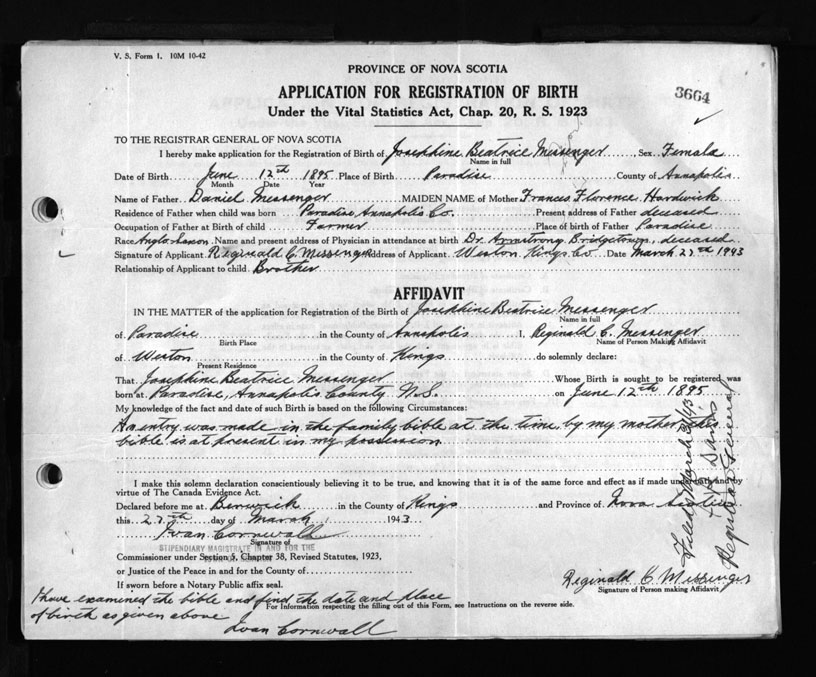 V. S. Form 1. 10M 10-42
PROVINCE OF NOVA SCOTIA
APPLICATION FOR REGISTRATION OF BIRTH
3664
Under the Vital Statistics Act, Chap. 20, R. S. 1923
TO THE REGISTRAR GENERAL OF NOVA SCOTIA
I hereby make application for the Registration of Birth of Josephine Beatrice Messenger Sex Female
Name in full
Date of Birth June 12th 1895 Place of Birth Paradise County of Annapolis
Month Date Year
Name of Father Daniel Messenger MAIDEN NAME of Mother Frances Florence Hardwick
Residence of Father when child was born Paradise Annapolis Co. Present address of Father deceased
Occupation of Father at Birth of child Farmer Place of birth of Father Paradise
Race Anglo Saxon Name and present address of Physician in attendance at birth Dr. Armstrong Bridgetown, deceased
Signature of Applicant Reginald C. Messenger Address of Applicant Weston Kings Co Date March 27th 1943
Relationship of Applicant to child Brother
AFFIDAVIT
IN THE MATTER of the application for Registration of the Birth of Josephine Beatrice Messenger
Name in full
of Paradise in the County of Annapolis I, Reginald C. Messenger
Birth Place Name of Person Making Affidavit
of Weston in the County of Kings do solemnly declare:
Present Residence
That Josephine Beatrice Messenger Whose Birth is sought to be registered was
born at Paradise, Annapolis County N.S. on June 12th 1895
My knowledge of the fact and date of such Birth is based on the following Circumstances:
An entry was made in the family bible at the time by my mother, this
bible is at present in my possession
I make this solemn declaration conscientiously believing it to be true, and knowing that it is of the same force and effect as if made under oath and by
virtue of The Canada Evidence Act.
Declared before me at Berwick in the County of Kings and Province of Nova Scotia
this 27th day of March 1943
Ivan Cornwall
Signature of
STIPENDIARY MAGISTRATE IN AND FOR THE
Commissioner under Section 5, Chapter 38, Revised Statutes, 1923,
or Justice of the Peace in and for the County of
If sworn before a Notary Public affix seal.
Reginald C. Messenger
Signature of Person making Affidavit
For Information respecting the filling out of this Form, see Instructions on the reverse side.
I have examined the bible and find the date and place
of birth as given above
Ivan Cornwall
Filed March 31/43
Davis
Registrar General